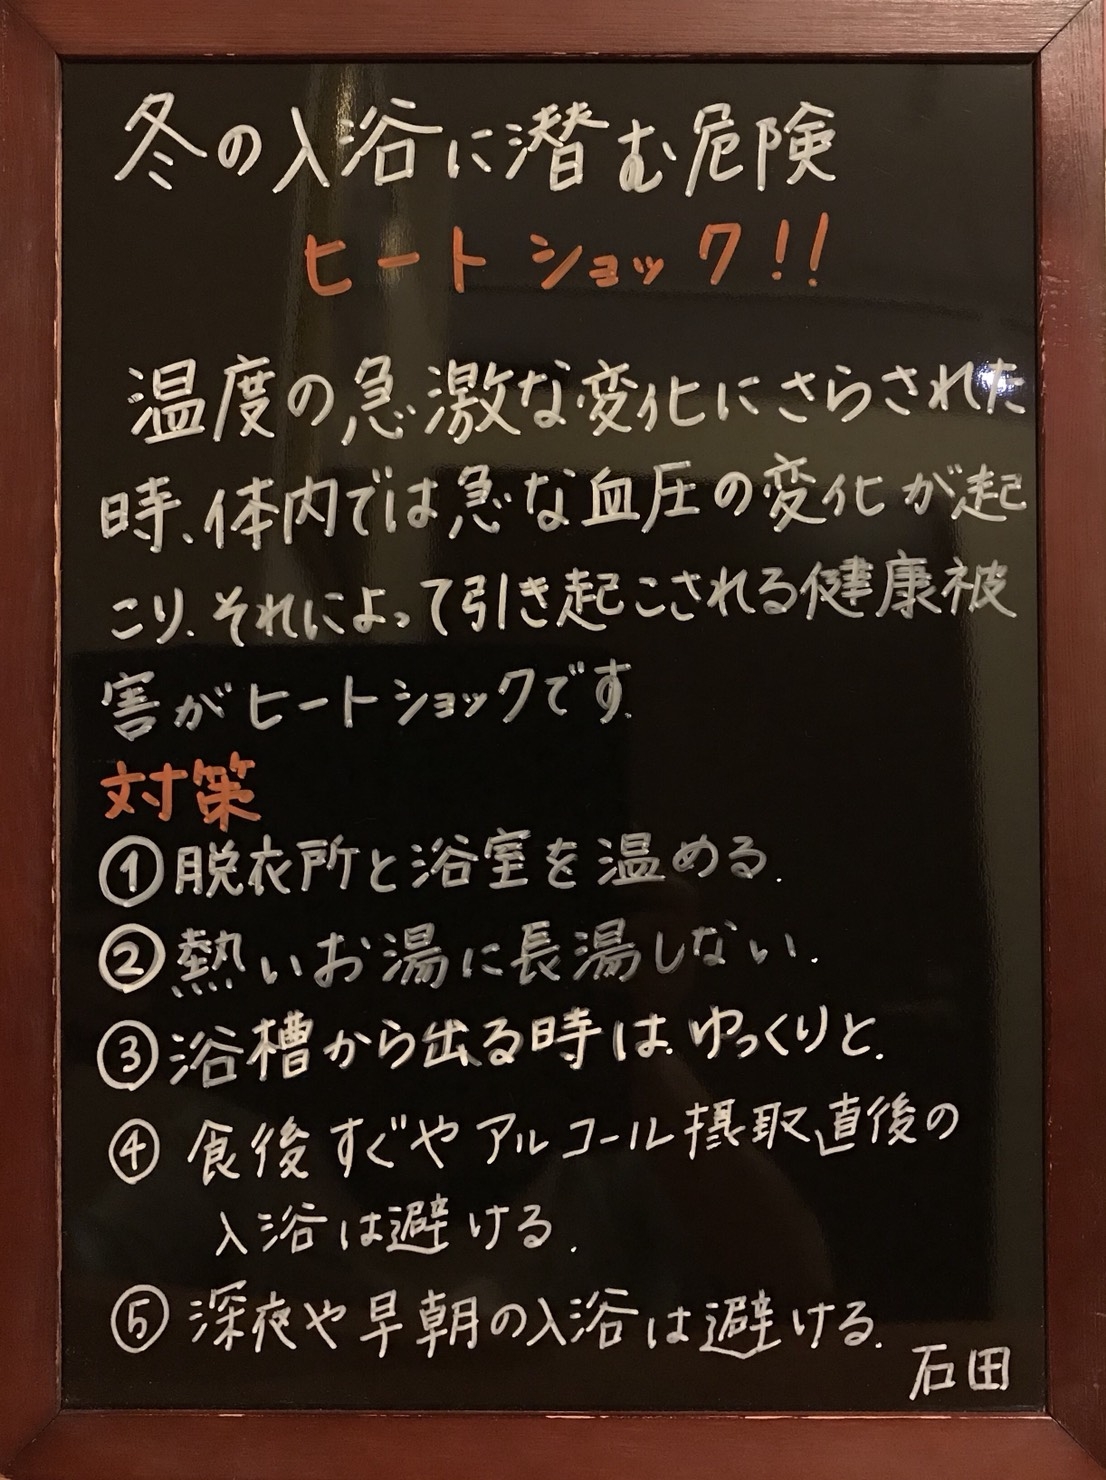 冬の入浴に潜む危険
ヒートショック!!
温度の急激な変化にさらされた
時、体内では急な血圧の変化が起
こり、それによって引き起こされる健康被
害がヒートショックです。
対策
①脱衣所と浴室を温める。
②熱いお湯に長湯しない。
③浴槽から出る時はゆっくりと。
④食後すぐやアルコール摂取直後の
入浴は避ける。
⑤深夜や早朝の入浴は避ける。
石田